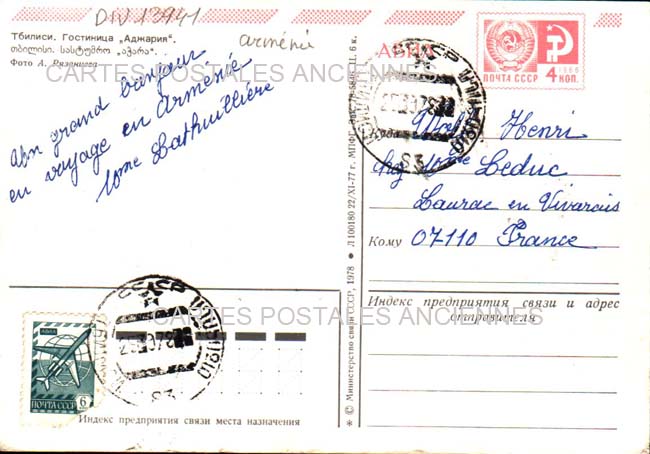 DIV 13941
arménie
Тбилиси. Гостиница „Аджария“.
თბილისი. სასტუმრო „აჭარა“.
Фото А. Рязанцева
CARTES POSTALES ANCIENNES
Mon grand bonjour
en voyage en Arménie
Mme Lathuillière
АВИА
ПОЧТА СССР 4 КОП.
СССР
53
Henri
chez Mme Leduc
Laurac en Vivarais
Кому
07110 France
Индекс предприятия связи и адрес
отправителя
CARTES POSTALES ANCIENNES
СССР
53
АВИА
ПОЧТА СССР 6
Индекс предприятия связи места назначения
* © Министерство связи СССР, 1978 ● Л 100180 22/XI-77 г. МПФГ.